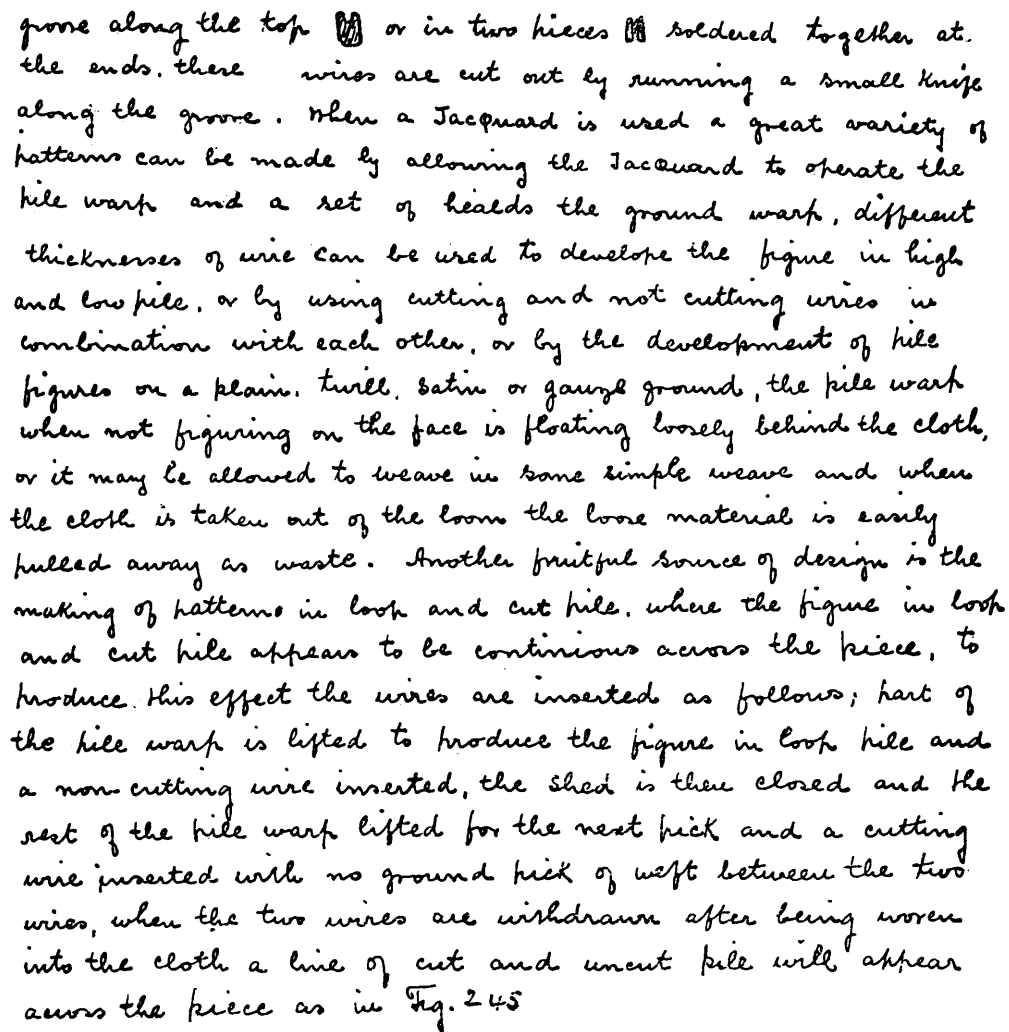 groove along the top or in two pieces soldered together at.
the ends. these wires are cut out by running a small knife
along the groove. When a Jacquard is used a great variety of
patterns can be made by allowing the Jacquard to operate the
pile warp and a set of healds the ground warp, different
thicknesses of wire can be used to develope the figure in high
and low pile, or by using cutting and not cutting wires in
combination with each other, or by the development of pile
figures on a plain, twill, satin or gauze ground, the pile warp
when not figuring on the face is floating loosely behind the cloth,
or it may be allowed to weave in some simple weave and when
the cloth is taken out of the loom the loose material is easily
pulled away as waste. Another fruitful source of design is the
making of patterns in loop and cut pile, where the figure in loop
and cut pile appears to be continious across the piece, to
produce this effect the wires are inserted as follows; part of
the pile warp is lifted to produce the figure in loop pile and
a non-cutting wire inserted, the shed is then closed and the
rest of the pile warp lifted for the next pick and a cutting
wire inserted with no ground pick of weft between the two
wires, when the two wires are withdrawn after being woven
into the cloth a line of cut and uncut pile will appear
across the piece as in Fig. 245